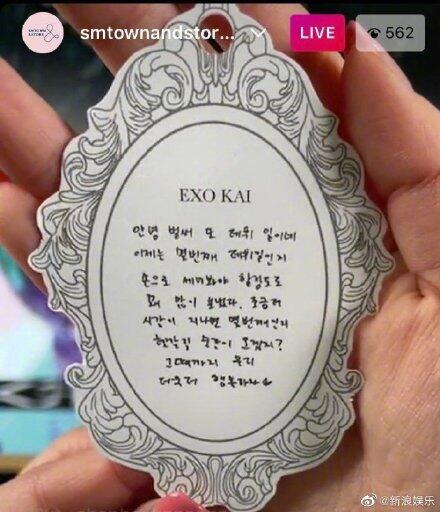 smtownandstor...
LIVE
562
EXO KAI
안녕 벌써 또 데뷔 일이네
이제는 몇번째 데뷔일인지
손으로 세어봐야 할정도로
꽤 많이 보냈다. 조금 더
시간이 지나면 몇번째인지
헷갈릴 순간이 오겠지?
그때까지 우리
더욱더 행복하자
@新浪娱乐